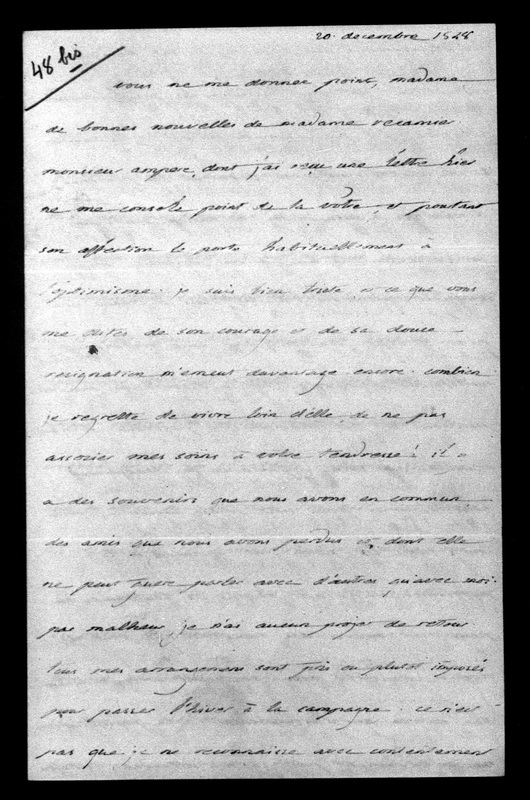 20. decembre 1848
48 bis
vous ne me donnez point, madame
de bonnes nouvelles de madame recamier
monsieur ampere, dont j'ai reçu une lettre hier
ne me console point de la votre, et pourtant
son affection le porte habituellement à
l'optimisme. je suis bien triste, et ce que vous
me dites de son courage et de sa douce
resignation m'emeut davantage encore. combien
je regrette de vivre loin d'elle, de ne pas
associer mes soins à votre tendresse! il
a des souvenirs que nous avons en commun
des amis que nous avons perdus et dont elle
ne peut guere parler avec d'autres qu'avec moi.
par malheur, je n'ai aucun projet de retour
tous mes arrangemens sont pris ou plutot imposés
pour passer l'hiver à la campagne. ce n'est
pas que je ne reconnaisse avec contentement